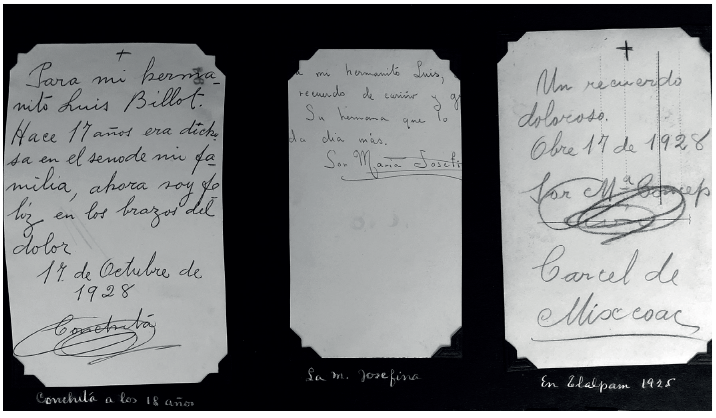 Para mi herma-
nito Luis Billot.
Hace 17 años era dicho-
sa en el seno de mi fa
milia, ahora soy fe
liz en los brazos del
dolor
17 de Octubre de
1928
Conchita
Conchita a los 18 años
a mi hermanito Luis,
recuerdo de cariño y g
Su hermana que lo
da dia más.
Sor Maria Josefi
La m. Josefina
Un recuerdo
doloroso.
Obre 17 de 1928
Sor Mª Concep
Carcel de
Mixcoac
En Tlalpam 1925